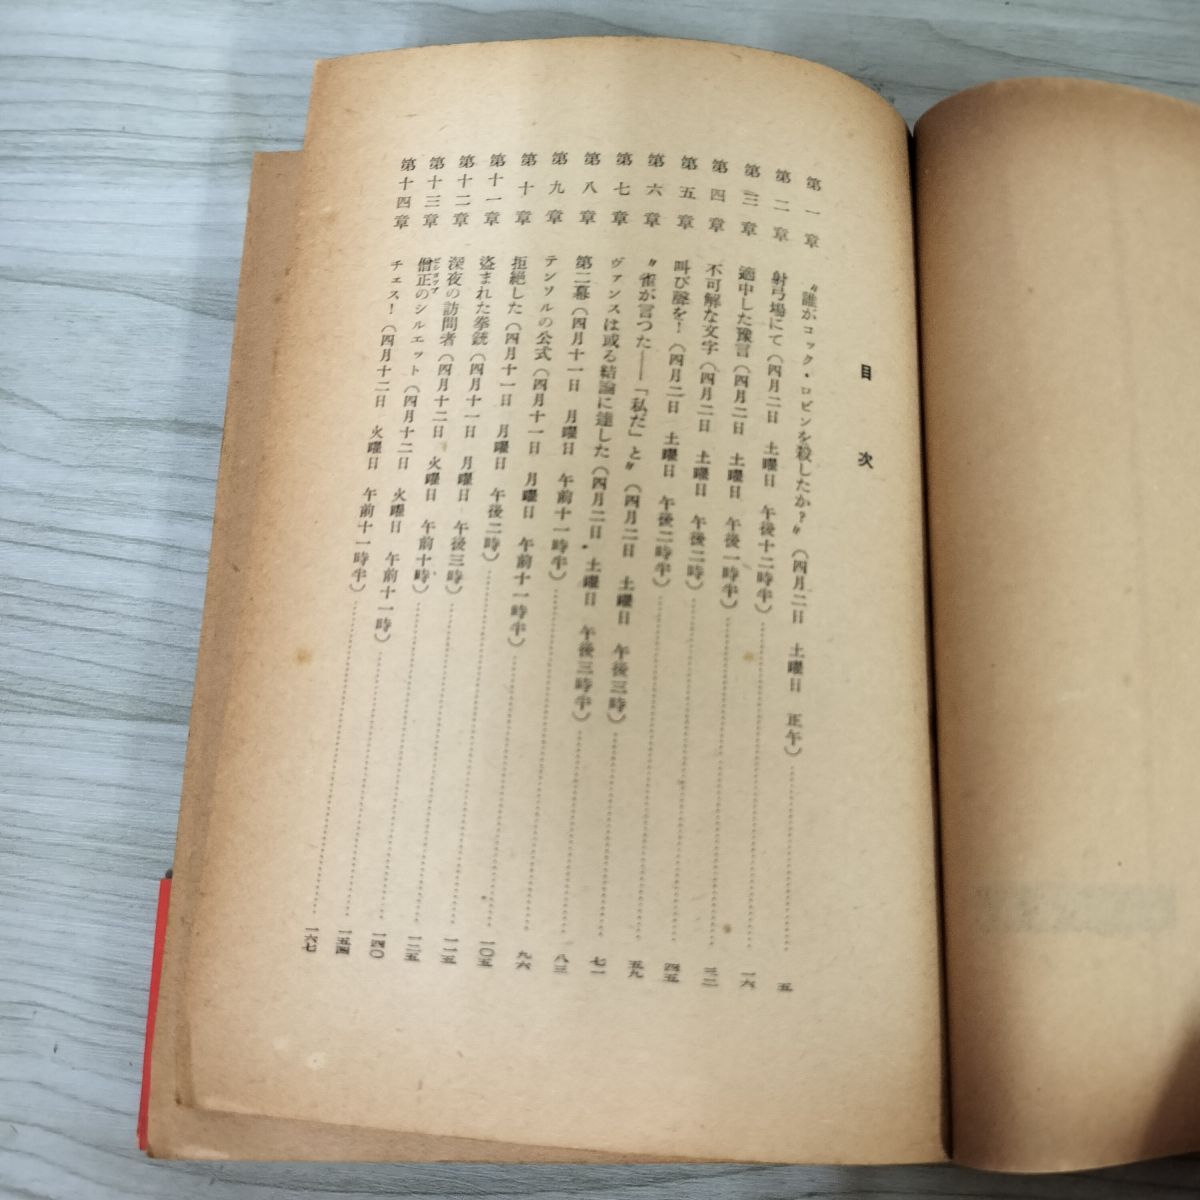 目次
第一章 〝誰がコック・ロビンを殺したか?〟(四月二日 土曜日 正午)……五
第二章 射弓場にて(四月二日 土曜日 午後十二時半)……一六
第三章 適中した豫言(四月二日 土曜日 午後一時半)……三二
第四章 不可解な文字(四月二日 土曜日 午後二時)……四五
第五章 叫び聲を!(四月二日 土曜日 午後二時半)……五九
第六章 〝雀が言つた――「私だ」と〟(四月二日 土曜日 午後三時)……七一
第七章 ヴァンスは或る結論に達した(四月二日 土曜日 午後三時半)……八三
第八章 第二幕(四月十一日 月曜日 午前十一時半)……九六
第九章 テンソルの公式(四月十一日 月曜日 午前十一時半)……一〇五
第十章 拒絶した(四月十一日 月曜日 午後二時)……一一五
第十一章 盗まれた拳銃(四月十一日 月曜日 午後三時)……一二五
第十二章 深夜の訪問者(四月十二日 火曜日 午前十時)……一四〇
第十三章 僧正のシルエット(四月十二日 火曜日 午前十一時)……一五四
ビショップ
第十四章 チェス!(四月十二日 火曜日 午前十一時半)……一六七